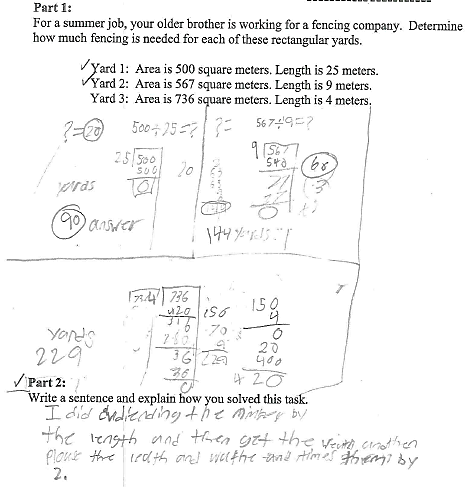 Part 1:
For a summer job, your older brother is working for a fencing company. Determine
how much fencing is needed for each of these rectangular yards.
Yard 1: Area is 500 square meters. Length is 25 meters.
Yard 2: Area is 567 square meters. Length is 9 meters.
Yard 3: Area is 736 square meters. Length is 4 meters.
?=20 500÷25=?
25 500
500 20
0
yards
90 answer
?= 567÷9=?
9 567
540 60
27 3
0
144 yards=?
736
420 150
316 70
36 229
36
0
150
4
0
20
400
420
yards
229
Part 2:
Write a sentence and explain how you solved this task.
I did the by
the length and then get the
the and the and times them by
2.